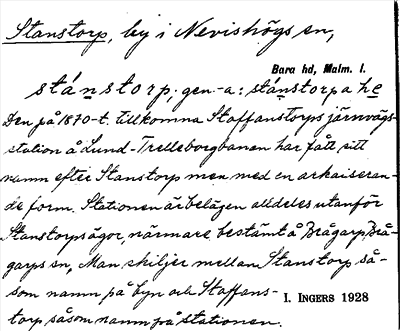 Stanstorp, by i Nevishögs sn,
Bara hd, Malm. l.
stánstorp, gen -a: stánstorpa he
Den på 1870-t. tillkomna Staffanstorps järnvägs-
station å Lund-Trelleborgbanan har fått sitt
namn efter Stanstorp men med en arkaiseran-
de form. Stationen är belägen alldeles utanför
Stanstorps ägor, närmare bestämt å Brågarp, Brå-
garps sn. Man skiljer mellan Stanstorp så-
som namn på byn och Staffans-
torp såsom namn på stationen.
I. INGERS 1928